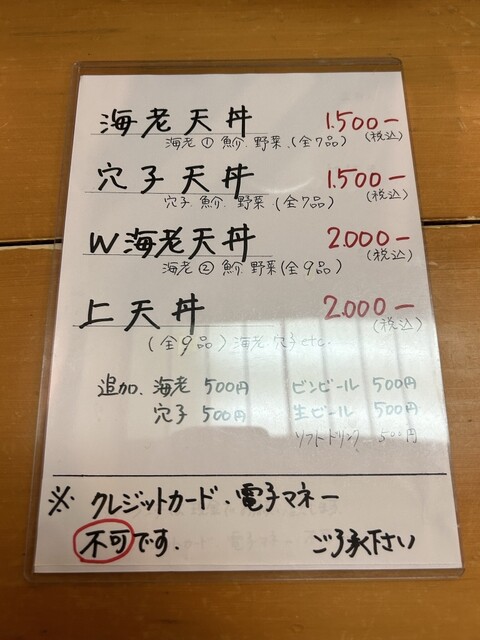 海老天丼 1.500−
海老①魚介.野菜.(全7品) (税込)
穴子天丼 1.500−
穴子.魚介.野菜(全7品) (税込)
W海老天丼 2.000−
海老②魚介.野菜(全9品) (税込)
上天丼 2.000−
(全9品)海老.穴子etc. (税込)
追加.海老 500円 ビンビール 500円
穴子 500円 生ビール 500円
ソフトドリンク 500円
※ クレジットカード・電子マネー
不可です. ご了承下さい